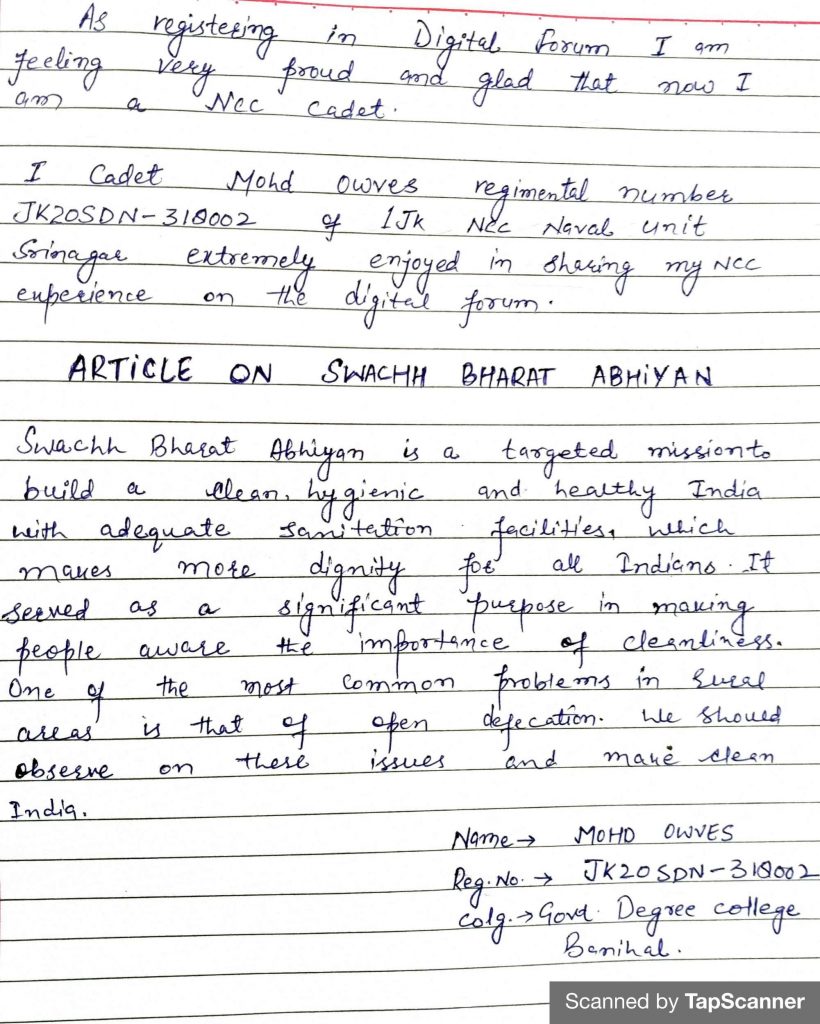 As registering in Digital Forum I am
feeling very proud and glad that now I
am a Ncc Cadet.
I Cadet Mohd Owves regimental number
JK20SDN-310002 of 1Jk Ncc Naval unit
Srinagar extremely enjoyed in sharing my NCC
experience on the digital forum.
ARTICLE ON SWACHH BHARAT ABHIYAN
Swachh Bharat Abhiyan is a targeted mission to
build a clean, hygienic and healthy India
with adequate sanitation facilities, which
makes more dignity for all Indians. It
served as a significant purpose in making
people aware the importance of cleanliness.
One of the most common problems in rural
areas is that of open defecation. We should
observe on these issues and make clean
India.
Name → MOHD OWVES
Reg. No. → JK20SDN-310002
Colg. → Govt. Degree college
Banihal.
Scanned by TapScanner